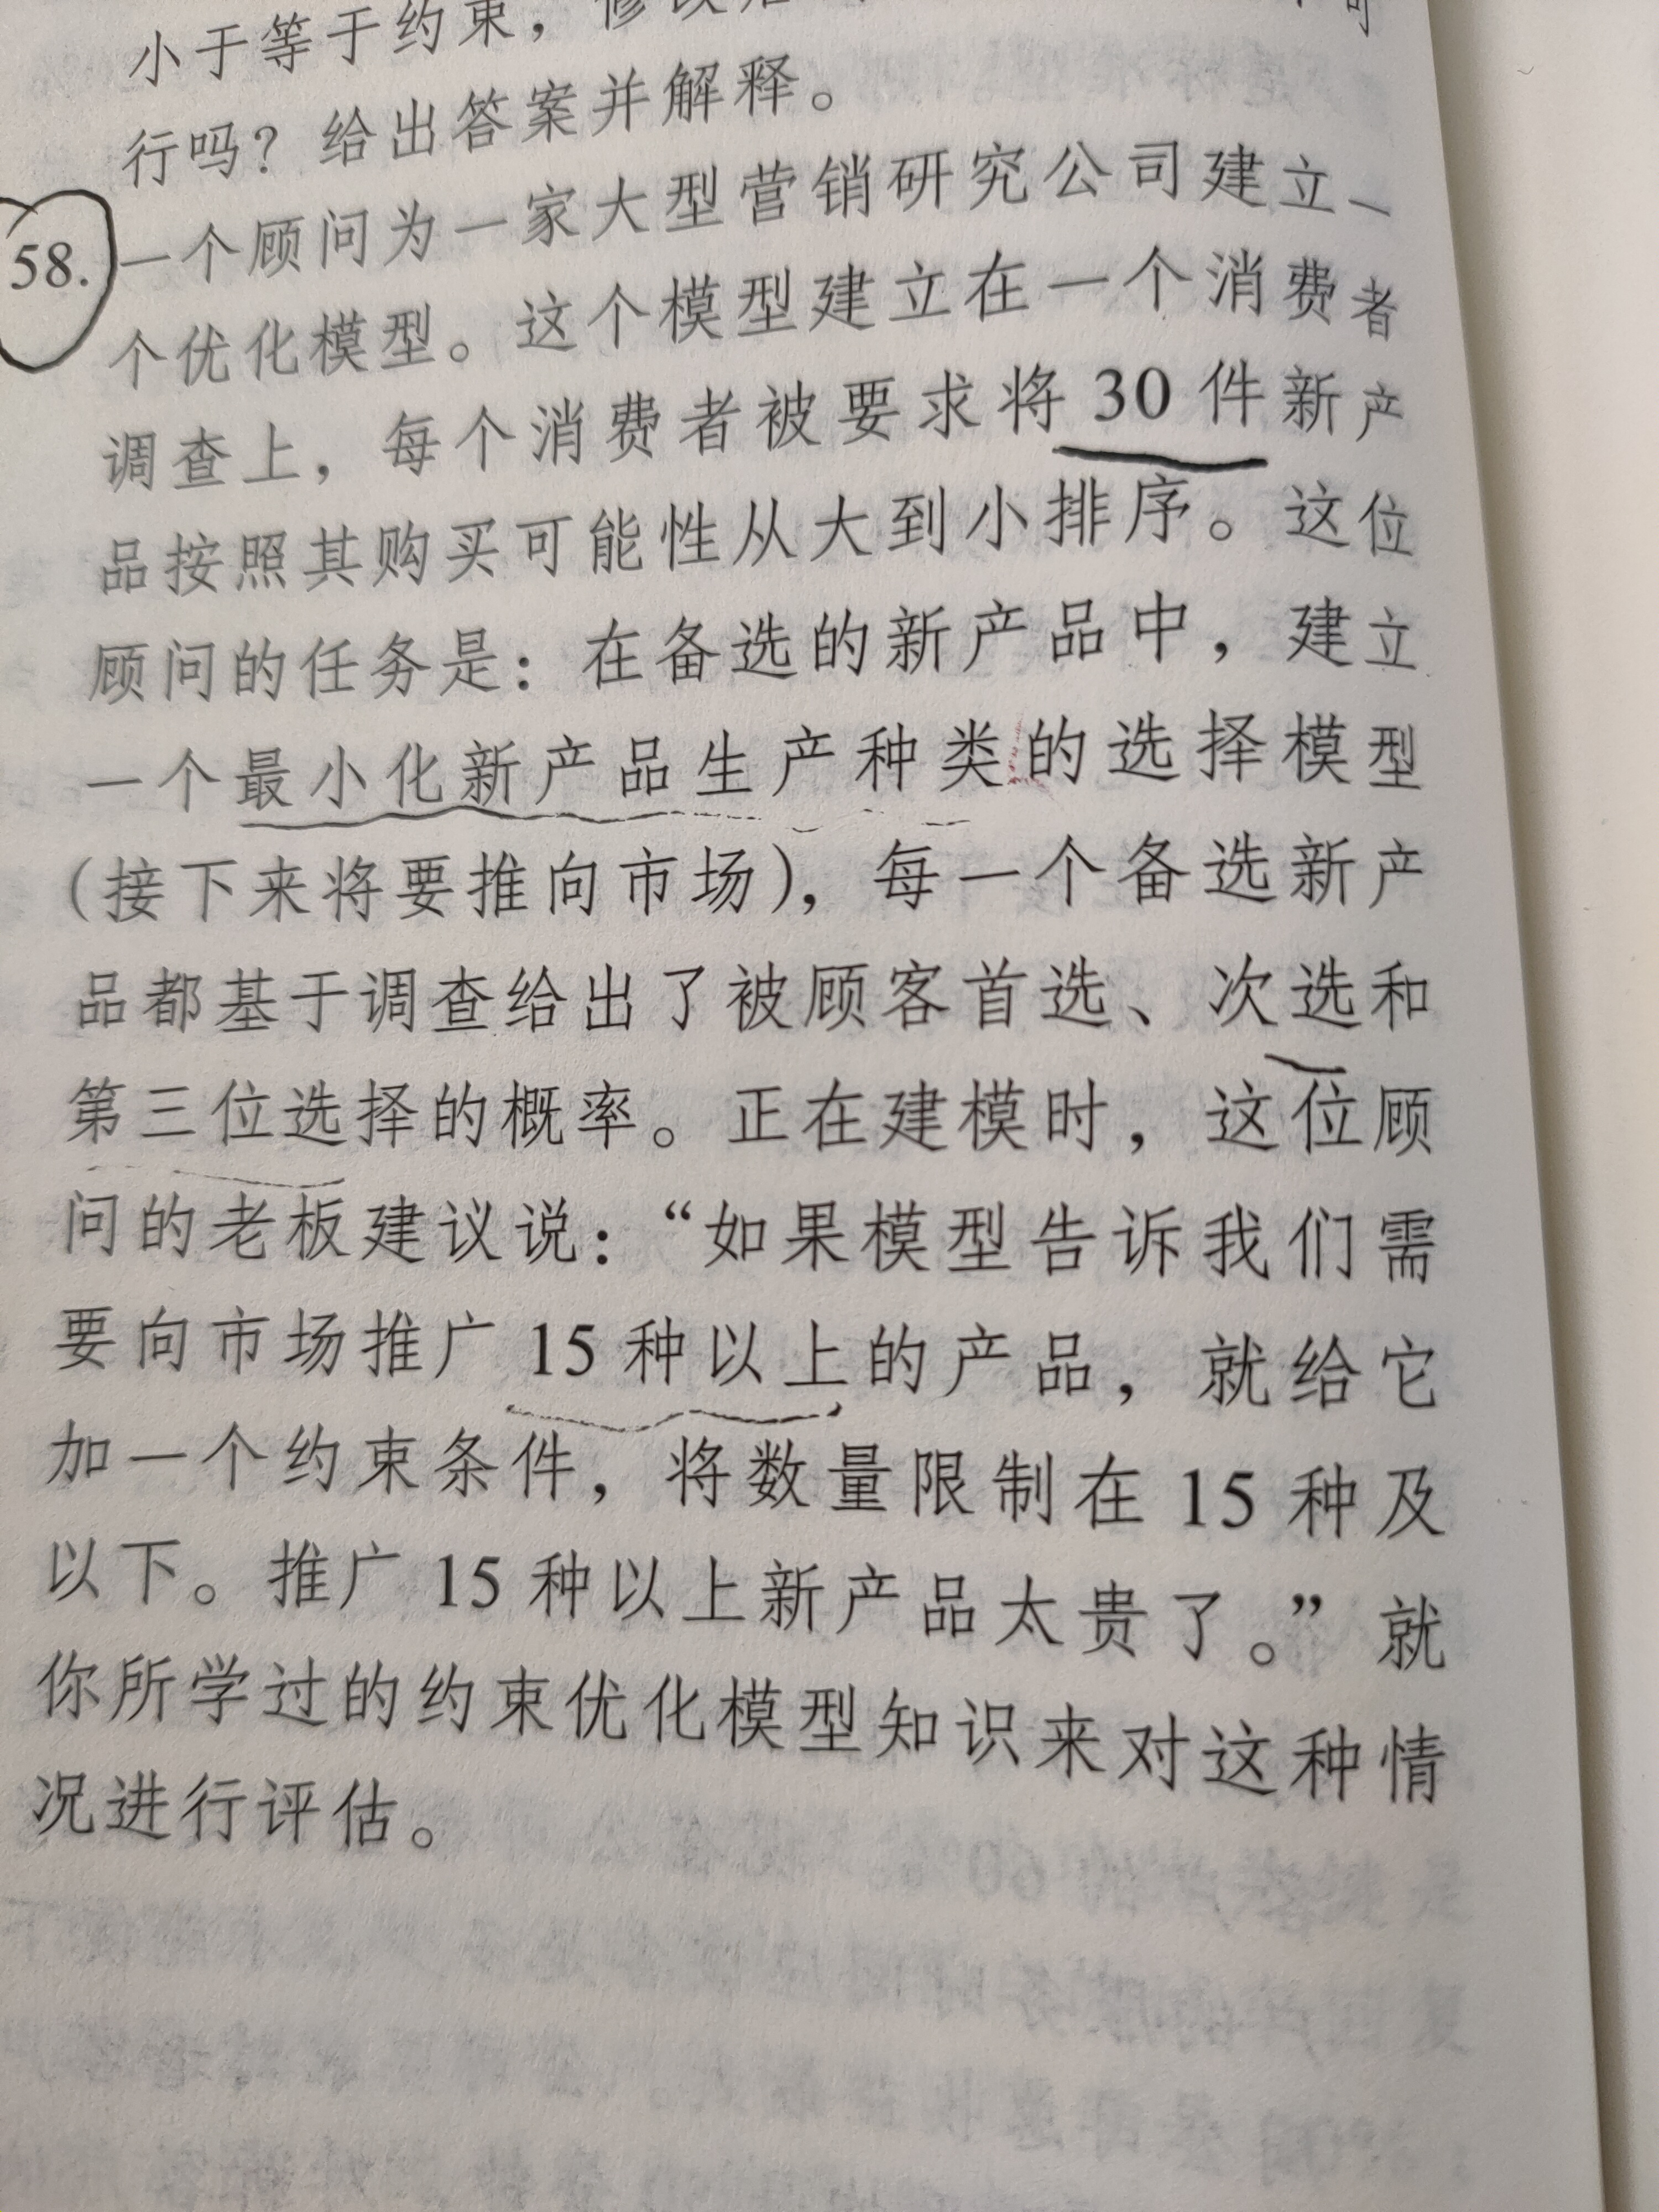 小于等于约束，修改后
行吗？给出答案并解释。
58. 一个顾问为一家大型营销研究公司建立一
个优化模型。这个模型建立在一个消费者
调查上，每个消费者被要求将 30 件新产
品按照其购买可能性从大到小排序。这位
顾问的任务是：在备选的新产品中，建立
一个最小化新产品生产种类的选择模型
（接下来将要推向市场），每一个备选新产
品都基于调查给出了被顾客首选、次选和
第三位选择的概率。正在建模时，这位顾
问的老板建议说：“如果模型告诉我们需
要向市场推广 15 种以上的产品，就给它
加一个约束条件，将数量限制在 15 种及
以下。推广 15 种以上新产品太贵了。”就
你所学过的约束优化模型知识来对这种情
况进行评估。